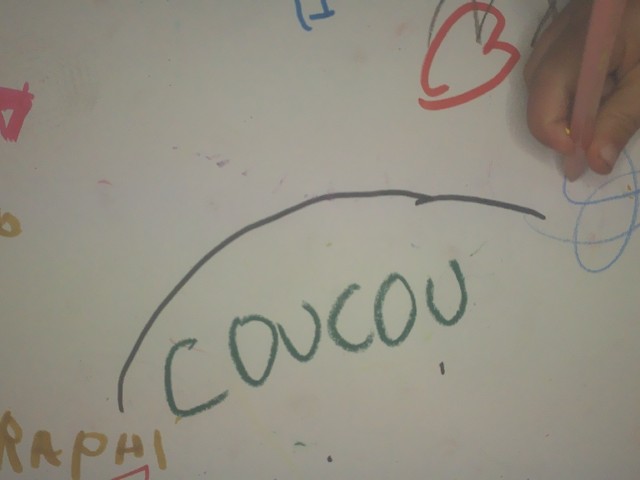 COUCOU
RAPHI